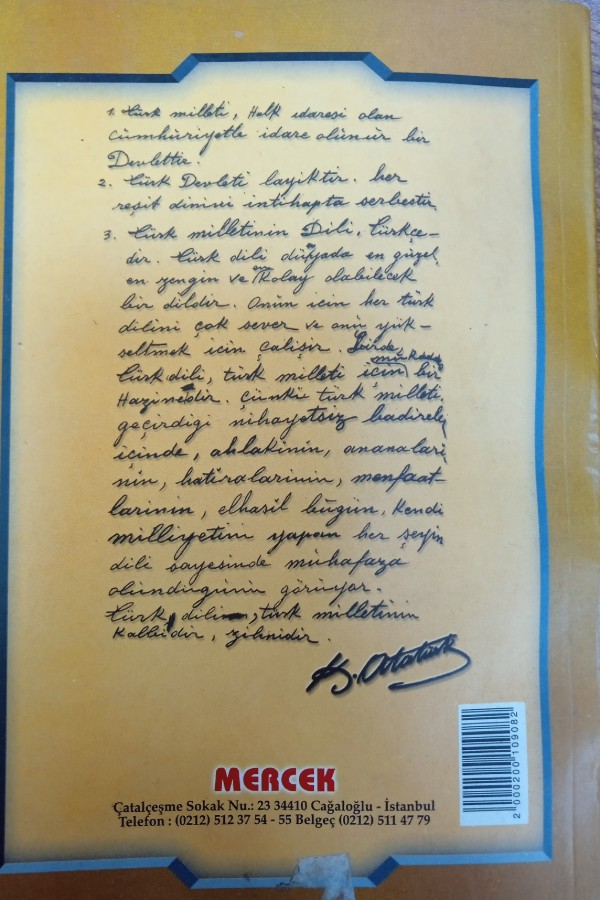 1. Türk milleti, Halk idaresi olan
Cümhüriyetle idare olünür bir
Devlettir.
2. Türk Devleti layiktir. her
reşit dinini intihapta serbesttir
3. Türk milletinin Dili, Türkçe-
dir. Türk dili dünyada en güzel,
en zengin ve en kolay olabilecek
bir dildir. Onün için her türk
dilini çok sever ve onü yük-
seltmek için çalişir. Birde,
Türk dili, türk milleti için mukaddes bir
Hazinedir. Çünkü türk milleti,
geçirdiği nihayetsiz badireler
içinde, ahlakinin, ananalari
nin, hatiralarinin, menfaat-
larinin, elhasil bügün, Kendi
milliyetini yapan her şeyin
dili sayesinde mühafaza
olündügünü görüyor.
Türk dili, türk milletinin
Kalbidir, zihnidir.
K. Atatürk
MERCEK
Çatalçeşme Sokak Nu.: 23 34410 Cağaloğlu - İstanbul
Telefon : (0212) 512 37 54 - 55 Belgeç (0212) 511 47 79
2 000200 109082